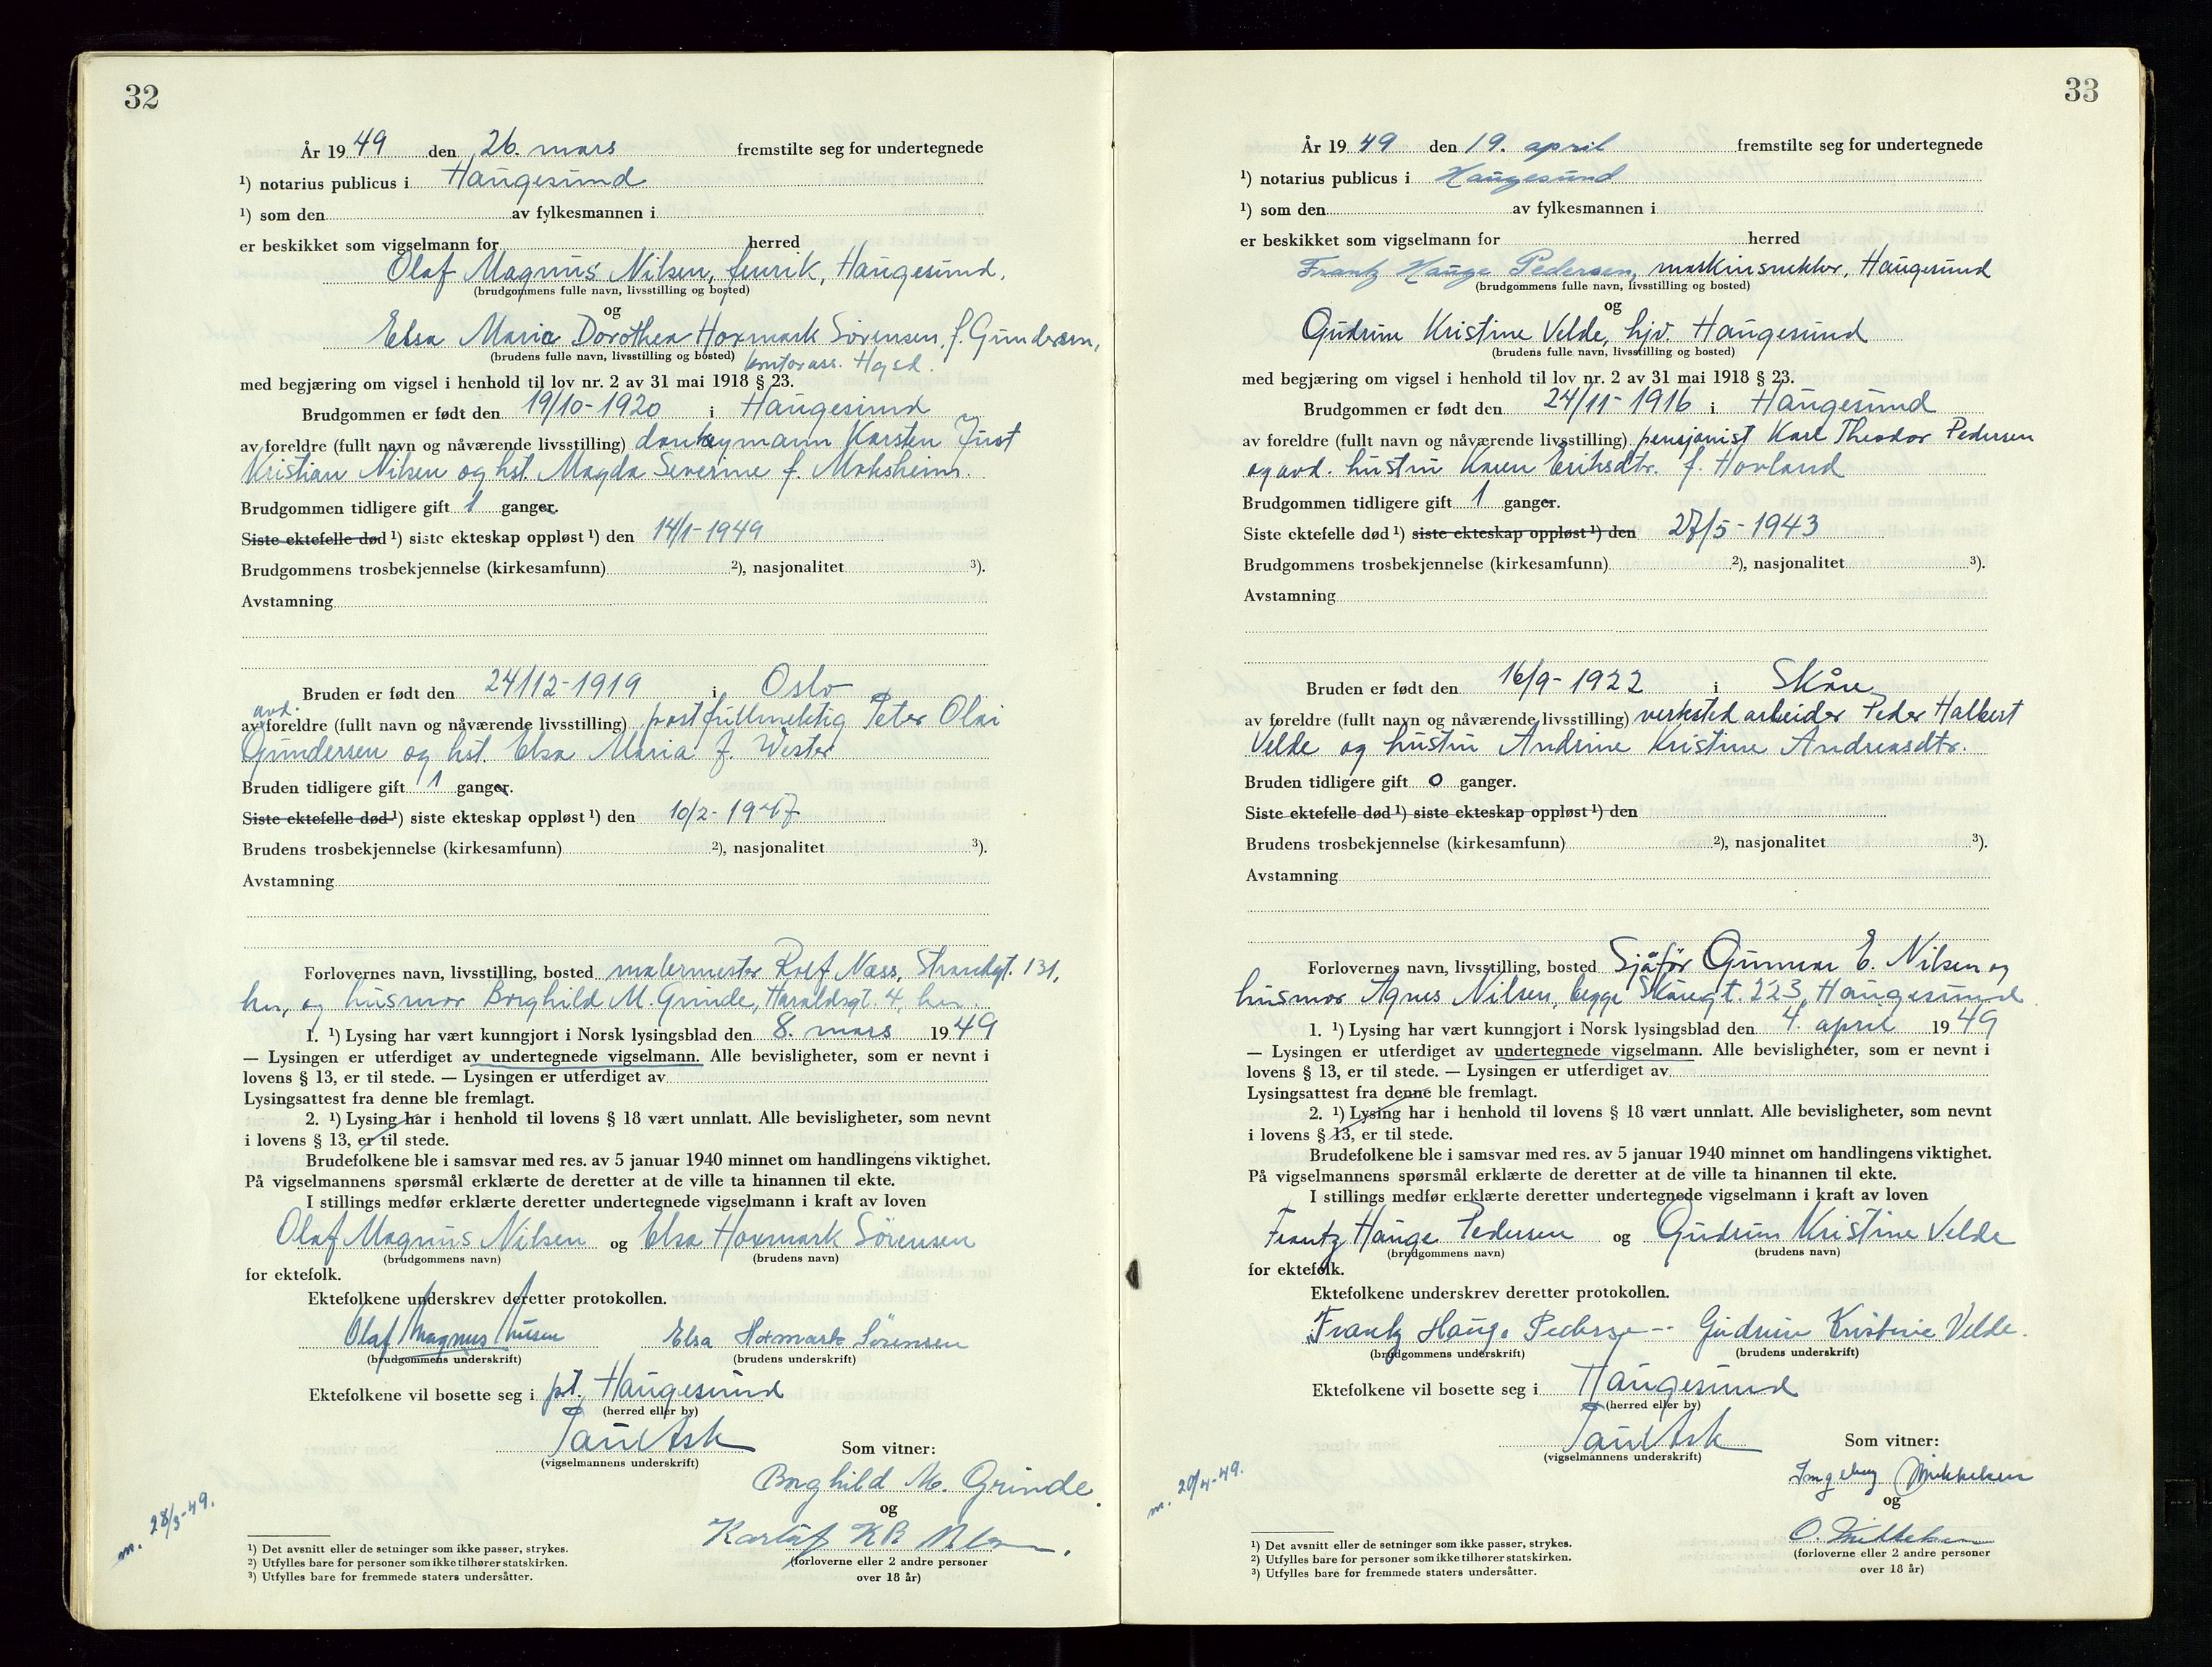 32
År 1949 den 26. mars fremstilte seg for undertegnede
¹) notarius publicus i Haugesund
¹) som den av fylkesmannen i
er beskikket som vigselmann for herred
Olaf Magnus Nilsen, fenrik, Haugesund,
(brudgommens fulle navn, livsstilling og bosted)
og
Elsa Maria Dorothea Hoxmark Sörensen, f. Gundersen,
(brudens fulle navn, livsstilling og bosted) kontorass. Hgsd.
med begjæring om vigsel i henhold til lov nr. 2 av 31 mai 1918 § 23.
Brudgommen er født den 19/10-1920 i Haugesund
av foreldre (fullt navn og nåværende livsstilling) donkeymann Karsten Just
Kristian Nilsen og hst. Magda Severine f. Moksheim.
Brudgommen tidligere gift 1 ganger.
Siste ektefelle død ¹) siste ekteskap oppløst ¹) den 14/1-1949
Brudgommens trosbekjennelse (kirkesamfunn) ²), nasjonalitet ³).
Avstamning
Bruden er født den 24/12-1919 i Oslo
avd.
av foreldre (fullt navn og nåværende livsstilling) postfullmektig Peter Olai
Gundersen og hst. Elsa Maria f. Wester
Bruden tidligere gift 1 ganger.
Siste ektefelle død ¹) siste ekteskap oppløst ¹) den 10/2-1947
Brudens trosbekjennelse (kirkesamfunn) ²), nasjonalitet ³).
Avstamning
Forlovernes navn, livsstilling, bosted malermester Rolf Næss, Strandgt. 131,
her, og husmor Borghild M. Grinde, Haraldsgt. 4, her.
1. ¹) Lysing har vært kunngjort i Norsk lysingsblad den 8. mars 1949
— Lysingen er utferdiget av undertegnede vigselmann. Alle bevisligheter, som er nevnt i
lovens § 13, er til stede. — Lysingen er utferdiget av
Lysingsattest fra denne ble fremlagt.
2. ¹) Lysing har i henhold til lovens § 18 vært unnlatt. Alle bevisligheter, som nevnt
i lovens § 13, er til stede.
Brudefolkene ble i samsvar med res. av 5 januar 1940 minnet om handlingens viktighet.
På vigselmannens spørsmål erklærte de deretter at de ville ta hinannen til ekte.
I stillings medfør erklærte deretter undertegnede vigselmann i kraft av loven
Olaf Magnus Nilsen og Elsa Hoxmark Sörensen
(brudgommens navn) (brudens navn)
for ektefolk.
Ektefolkene underskrev deretter protokollen.
Olaf Magnus Nilsen Elsa Hoxmark Sörensen
(brudgommens underskrift) (brudens underskrift)
Ektefolkene vil bosette seg i pt. Haugesund
(herred eller by)
Paul Ask
(vigselmannens underskrift)
Som vitner:
Borghild M. Grinde.
og
(forloverne eller 2 andre personer
over 18 år)
m. 28/3-49.
¹) Det avsnitt eller de setninger som ikke passer, strykes.
²) Utfylles bare for personer som ikke tilhører statskirken.
³) Utfylles bare for fremmede staters undersåtter.
33
År 1949 den 19. april fremstilte seg for undertegnede
¹) notarius publicus i Haugesund
¹) som den av fylkesmannen i
er beskikket som vigselmann for herred
Frantz Hauge Pedersen, maskinsnekker, Haugesund
(brudgommens fulle navn, livsstilling og bosted)
og
Gudrun Kristine Velde, hjv. Haugesund
(brudens fulle navn, livsstilling og bosted)
med begjæring om vigsel i henhold til lov nr. 2 av 31 mai 1918 § 23.
Brudgommen er født den 24/11-1916 i Haugesund
av foreldre (fullt navn og nåværende livsstilling) pensjonist Karl Theodor Pedersen
og avd. hustru Karen Eriksdtr. f. Hovland
Brudgommen tidligere gift 1 ganger.
Siste ektefelle død ¹) siste ekteskap oppløst ¹) den 27/5-1943
Brudgommens trosbekjennelse (kirkesamfunn) ²), nasjonalitet ³).
Avstamning
Bruden er født den 16/9-1922 i Skåre
av foreldre (fullt navn og nåværende livsstilling) verkstedarbeider Peder Halbert
Velde og hustru Andrine Kristine Andreasdtr.
Bruden tidligere gift 0 ganger.
Siste ektefelle død ¹) siste ekteskap oppløst ¹) den
Brudens trosbekjennelse (kirkesamfunn) ²), nasjonalitet ³).
Avstamning
Forlovernes navn, livsstilling, bosted Sjåför Gunnar E. Nilsen og
husmor Agnes Nilsen, begge Skåregt. 223, Haugesund
1. ¹) Lysing har vært kunngjort i Norsk lysingsblad den 4. april 1949
— Lysingen er utferdiget av undertegnede vigselmann. Alle bevisligheter, som er nevnt i
lovens § 13, er til stede. — Lysingen er utferdiget av
Lysingsattest fra denne ble fremlagt.
2. ¹) Lysing har i henhold til lovens § 18 vært unnlatt. Alle bevisligheter, som nevnt
i lovens § 13, er til stede.
Brudefolkene ble i samsvar med res. av 5 januar 1940 minnet om handlingens viktighet.
På vigselmannens spørsmål erklærte de deretter at de ville ta hinannen til ekte.
I stillings medfør erklærte deretter undertegnede vigselmann i kraft av loven
Frantz Hauge Pedersen og Gudrun Kristine Velde
(brudgommens navn) (brudens navn)
for ektefolk.
Ektefolkene underskrev deretter protokollen.
Frantz Hauge Pedersen Gudrun Kristine Velde.
(brudgommens underskrift) (brudens underskrift)
Ektefolkene vil bosette seg i Haugesund
(herred eller by)
Paul Ask
(vigselmannens underskrift)
Som vitner:
Ingeborg Mikkelsen
og
O. Mikkelsen
(forloverne eller 2 andre personer
over 18 år)
m. 20/4-49.
¹) Det avsnitt eller de setninger som ikke passer, strykes.
²) Utfylles bare for personer som ikke tilhører statskirken.
³) Utfylles bare for fremmede staters undersåtter.